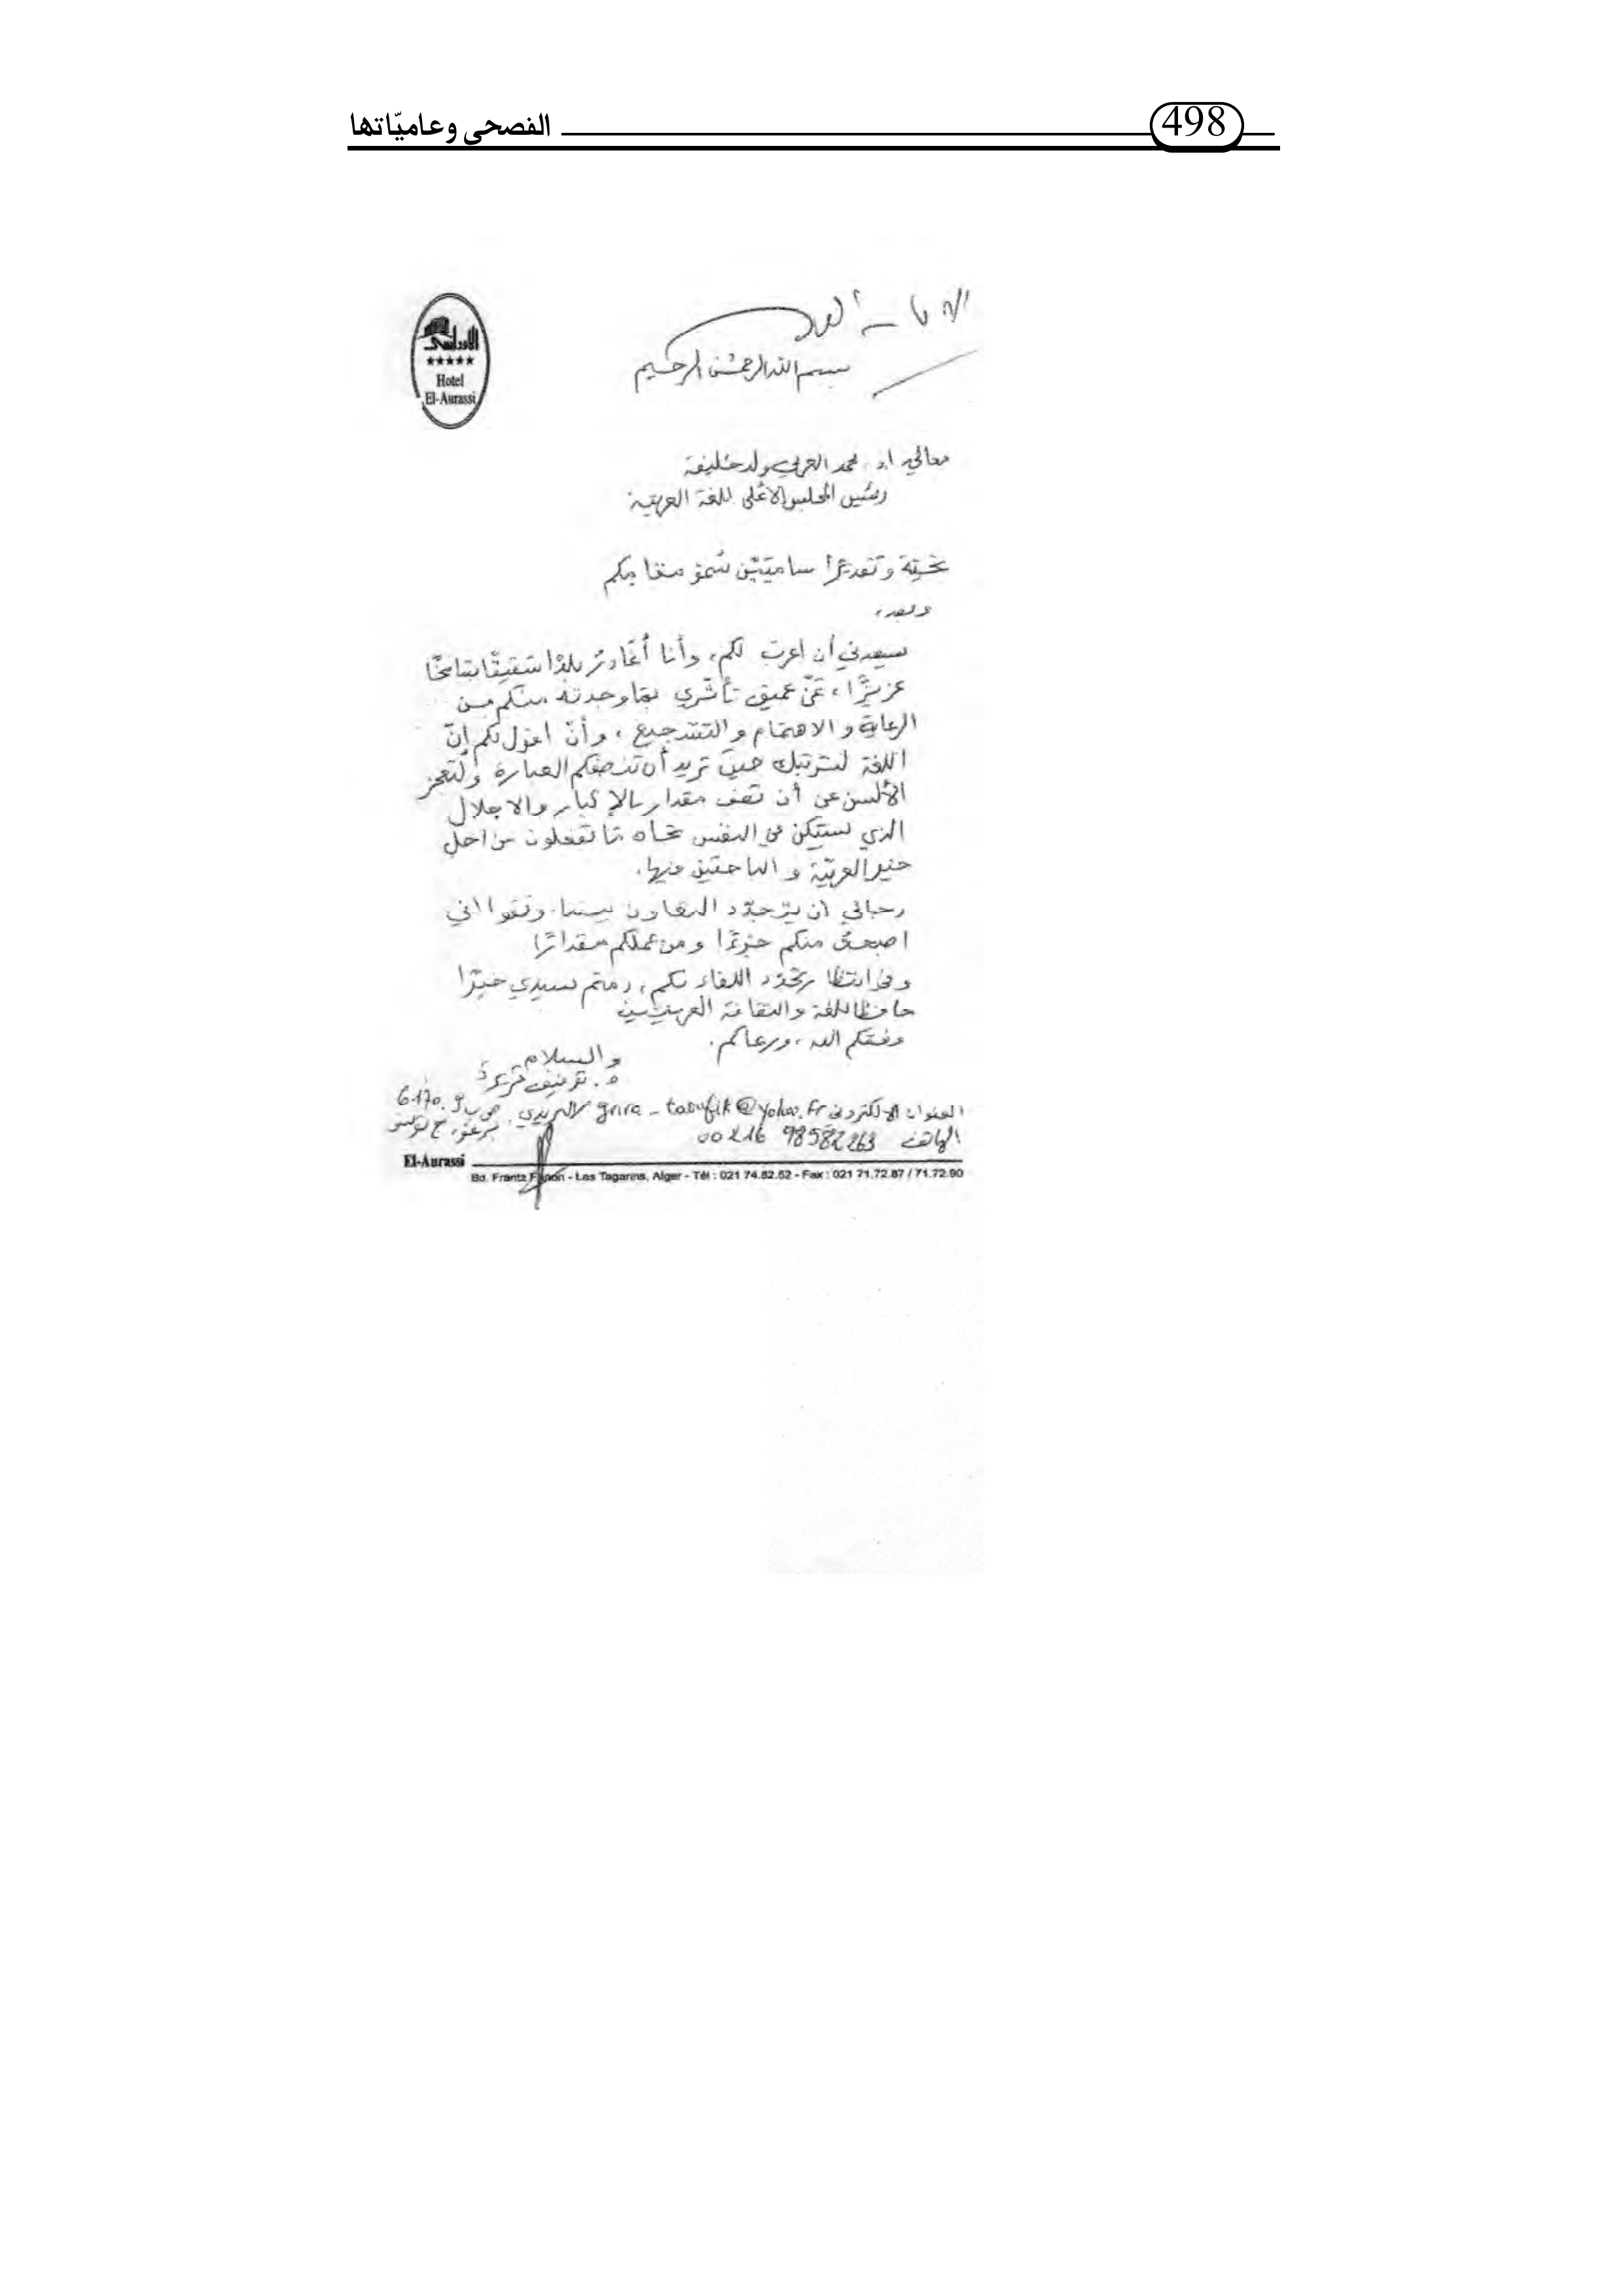 498
الفصحى وعاميّاتها
الأمانة العامة
الأوراسي
Hotel
El-Aurassi
بسم الله الرحمن الرحيم
معالي أ.د. محمد العربي ولد خليفة
رئيس المجلس الأعلى للغة العربية
تحيّة وتقديرًا ساميَيْن سُموّ مقامكم
وبعد،
يسعدني أن أعرب لكم، وأنا أُغادرُ بلدًا شقيقًا شامخًا
عزيزًا، عَنْ عميق تأثّري بمَا وجدتهُ منكم من
الرعاية والاهتمام والتشجيع، وأنْ أقول لكم إنّ
اللغة لترتبك حينَ تريد أن تنصفكم العبارة ولتعجز
الألسن عن أن تصف مقدار الإكبار والاجلال
الذي يستكن في النفس تجاه ما تفعلون من أجل
خير العربيّة والباحثين فيها.
رجائي أن يتجدّد التعاون بيننا. وثقوا أني
أصبحتُ منكم خبيرًا ومن عملكم مقدارًا
وفي انتظار تجدّد اللقاء بكم، دمتم سيدي خيّرًا
حافظا للغة والثقافة العربيتين
وفقكم الله، ورعاكم.
والسلام
د. توفيق قريرة
العنوان الالكتروني grira-taoufik@yahoo.fr البريدي: ص ب 6.170
الهاتف 00216 98582263
El-Aurassi
Bd. Frantz Fanon - Les Tagarins, Alger - Tél : 021 74.82.52 - Fax : 021 71.72.87 / 71.72.90